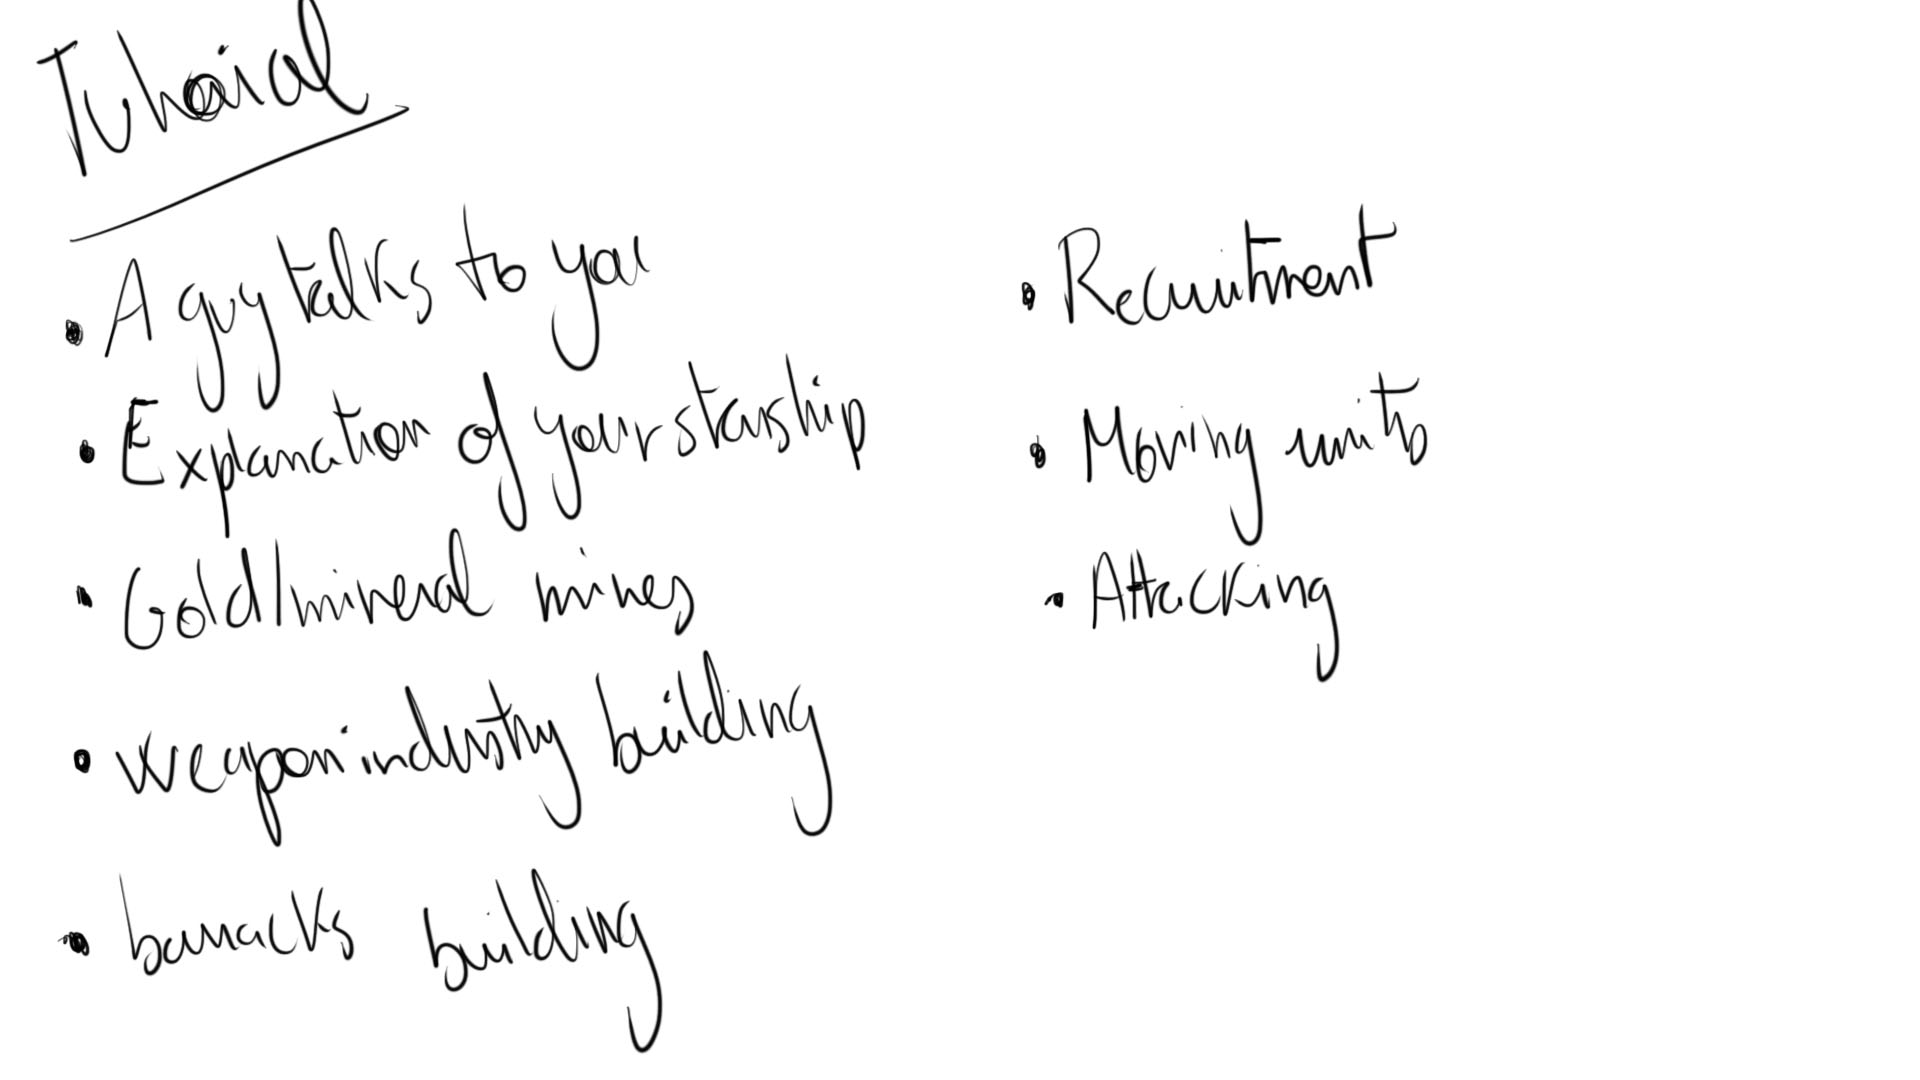 Tutorial
• A guy talks to you
• Explanation of your starship
• Gold/mineral mines
• weapon industry building
• barracks building
• Recruitment
• Moving units
• Attacking